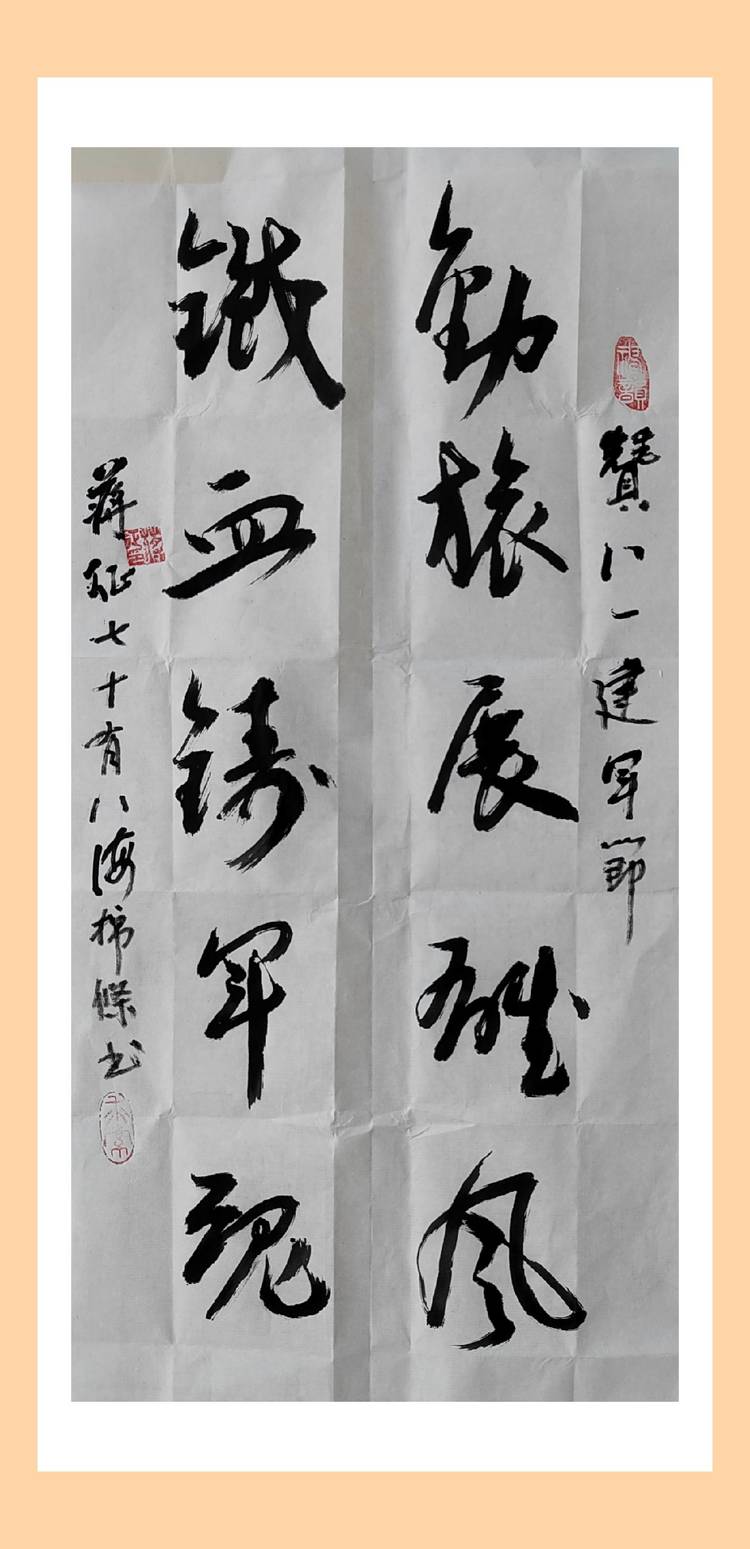 贊八一建军節
勁旅展雄风
鐵血鑄军魂
蔣征七十有八海棉條书